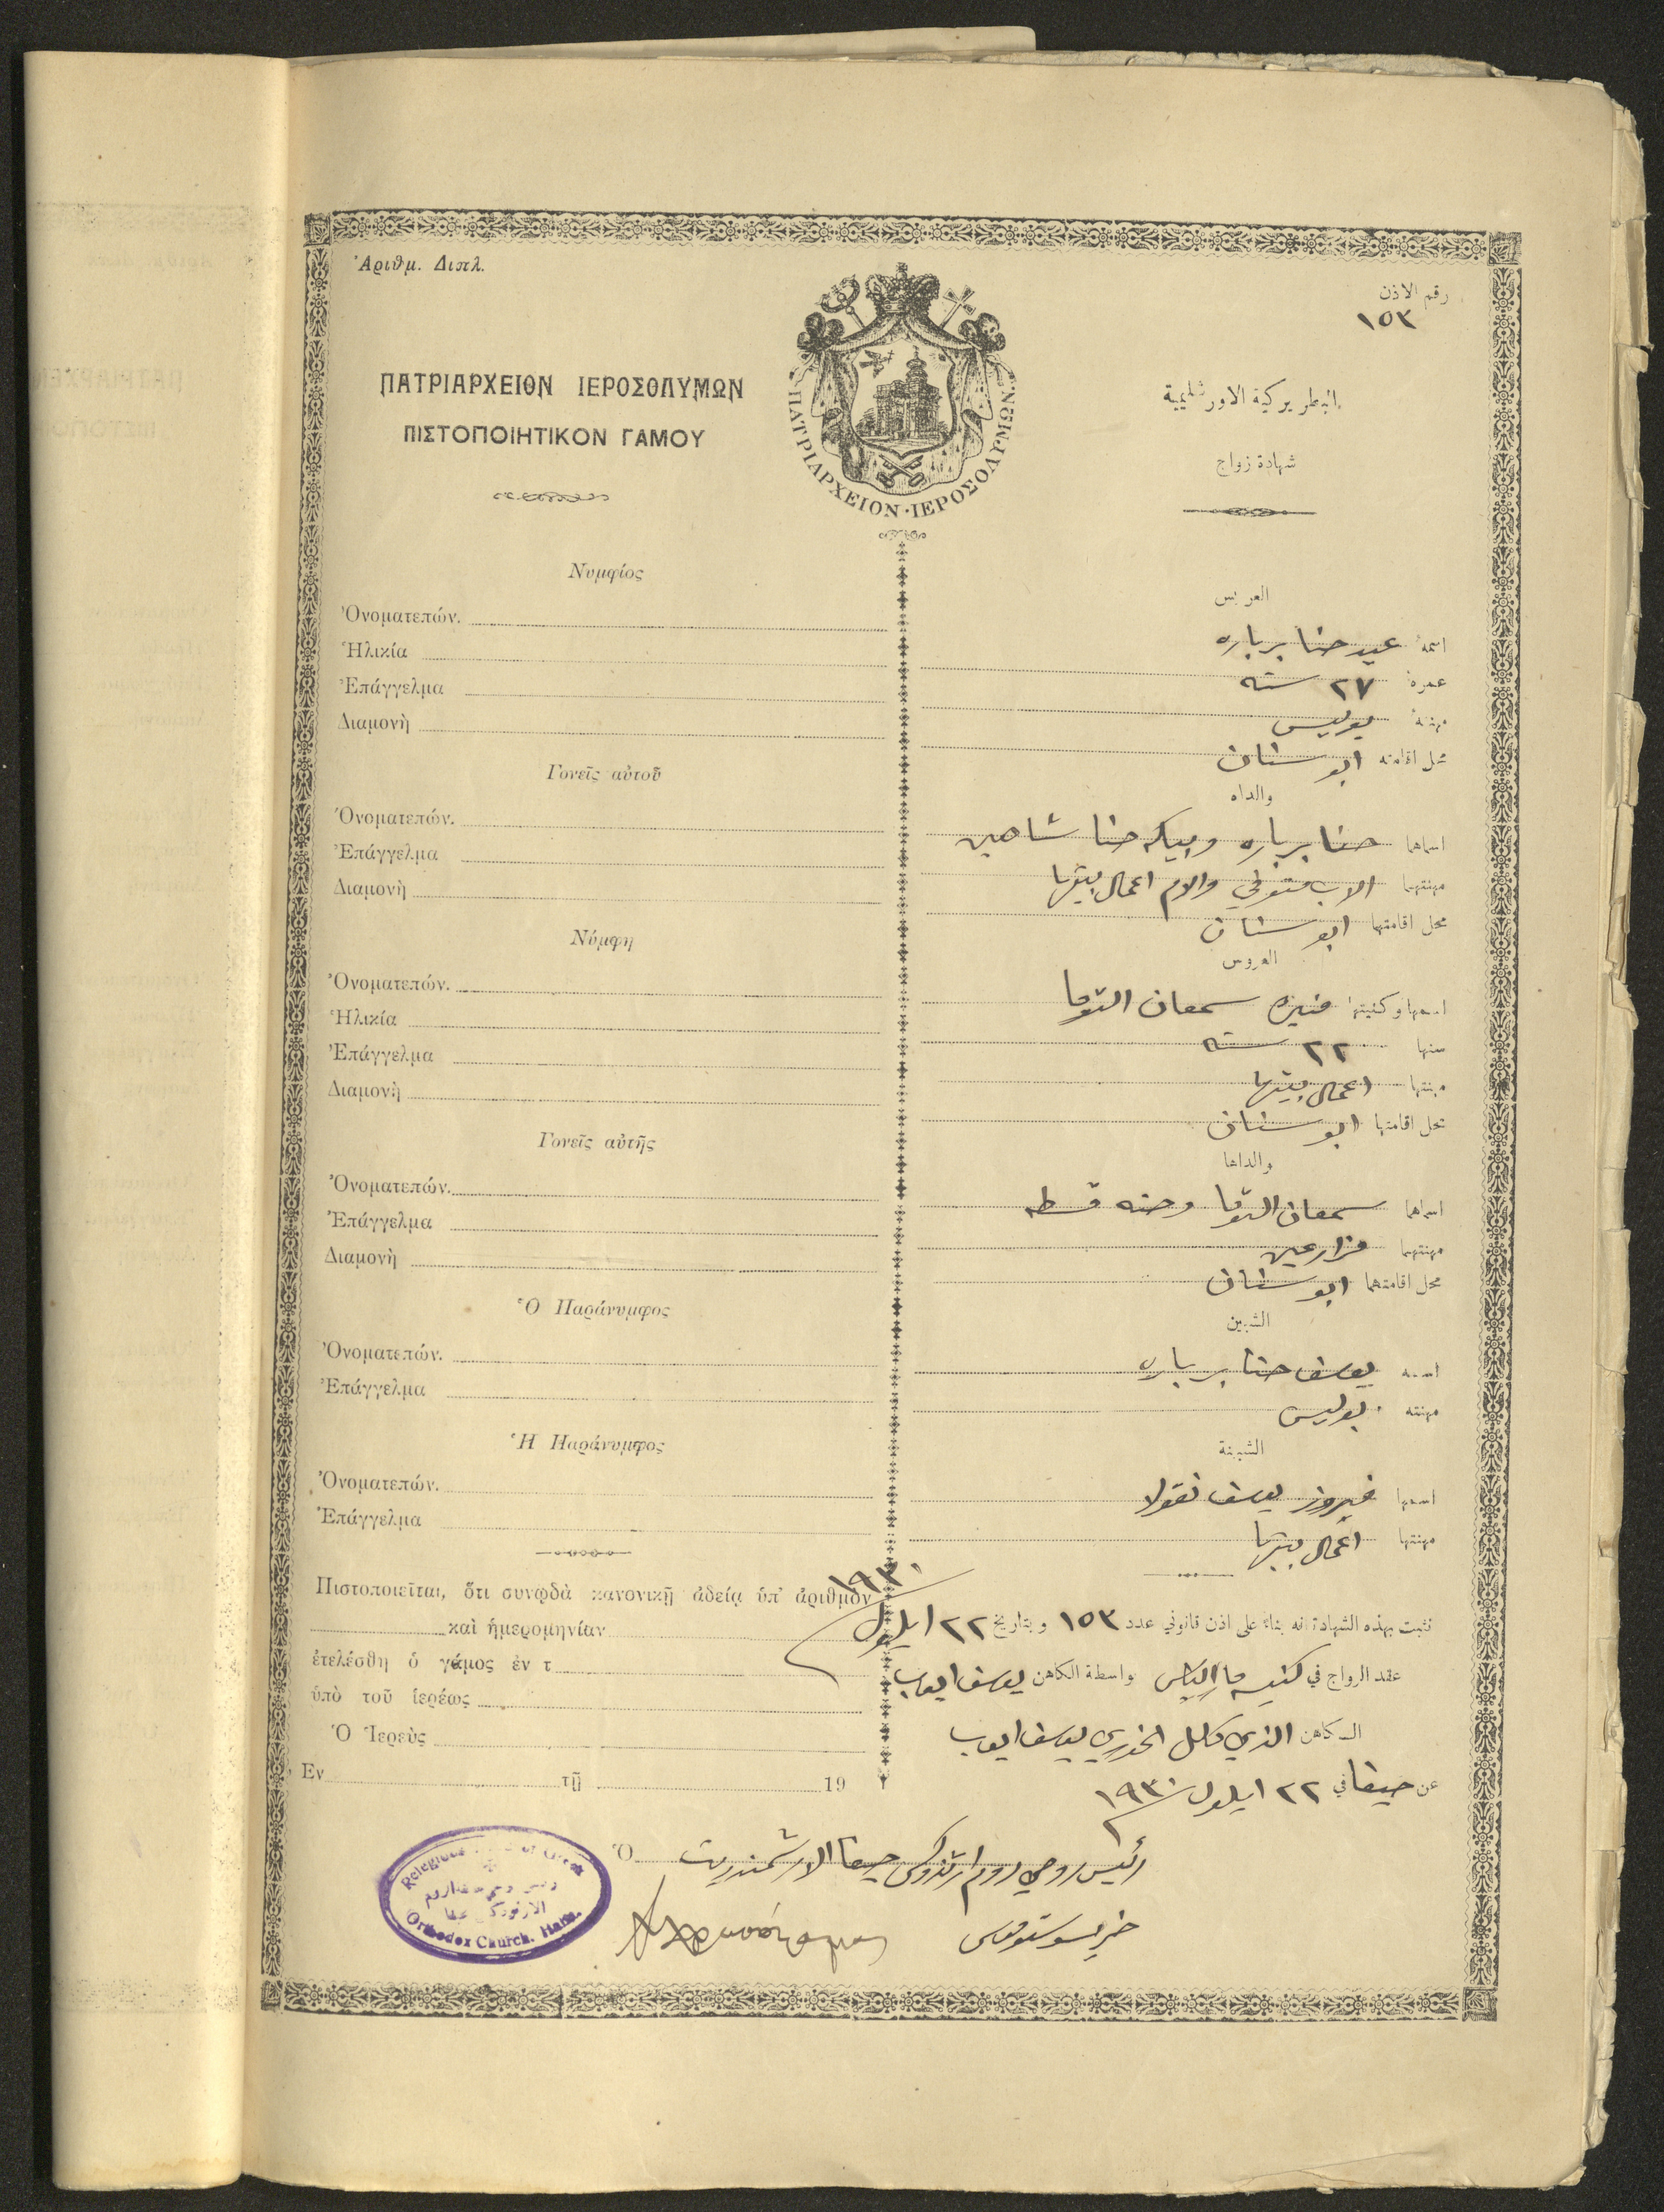 Ἀριθμ. Διπλ.
رقم الاذن
١٥٣
ΠΑΤΡΙΑΡΧΕΙΟΝ ΙΕΡΟΣΟΛΥΜΩΝ
ΠΙΣΤΟΠΟΙΗΤΙΚΟΝ ΓΑΜΟΥ
ΠΑΤΡΙΑΡΧΕΙΟΝ·ΙΕΡΟΣΟΛΥΜΩΝ
البطريركية الاورشليمية
شهادة زواج
Νυμφίος
Ὀνοματεπών.
Ἡλικία
Ἐπάγγελμα
Διαμονὴ
Γονεῖς αὐτοῦ
Ὀνοματεπών.
Ἐπάγγελμα
Διαμονὴ
Νύμφη
Ὀνοματεπών.
Ἡλικία
Ἐπάγγελμα
Διαμονὴ
Γονεῖς αὐτῆς
Ὀνοματεπών.
Ἐπάγγελμα
Διαμονὴ
Ὁ Παράνυμφος
Ὀνοματεπών.
Ἐπάγγελμα
Ἡ Παράνυμφος
Ὀνοματεπών.
Ἐπάγγελμα
Πιστοποιεῖται, ὅτι συνῳδὰ κανονικῇ ἀδείᾳ ὑπ' ἀριθμὸν
καὶ ἡμερομηνίαν
ἐτελέσθη ὁ γάμος ἐν τ
ὑπὸ τοῦ ἱερέως
Ὁ Ἱερεὺς
Ἐν τῇ 19
العريس
اسمه عيد حنا برباره
عمره ٢٧ سنه
مهنته بوليس
محل اقامته ابو سنان
والداه
اسماهما حنا برباره و حنا شاهين
مهنتهما الاب متوفي والام اعمال بيتها
محل اقامتهما ابو سنان
العروس
اسمها وكنيتها منيره سمعان التوما
سنها ٢٢ سنه
مهنتها اعمال بيتها
محل اقامتها ابو سنان
والداها
اسماهما سمعان التوما وحنه قسطه
مهنتهما مزارعين
محل اقامتهما ابو سنان
الشبين
اسمه يوسف حنا برباره
مهنته بوليس
الشبينة
اسمها فيروز يوسف نقولا
مهنتها اعمال بيتها
تثبت بهذه الشهادة انه بناءً على اذن قانوني عدد ١٥٣ وبتاريخ ٢٢ ايلول ١٩٣٠
عقد الزواج في كنيسة مار الياس بواسطة الكاهن يوسف ايوب
الكاهن الذي كلل الخوري يوسف ايوب
عن حيفا في ٢٢ ايلول ١٩٣٠
Ὁ رئيس روحي روم ارثذوكس حيفا الارشمندريت
خريسوستوموس
Orthodox Church. Haifa.